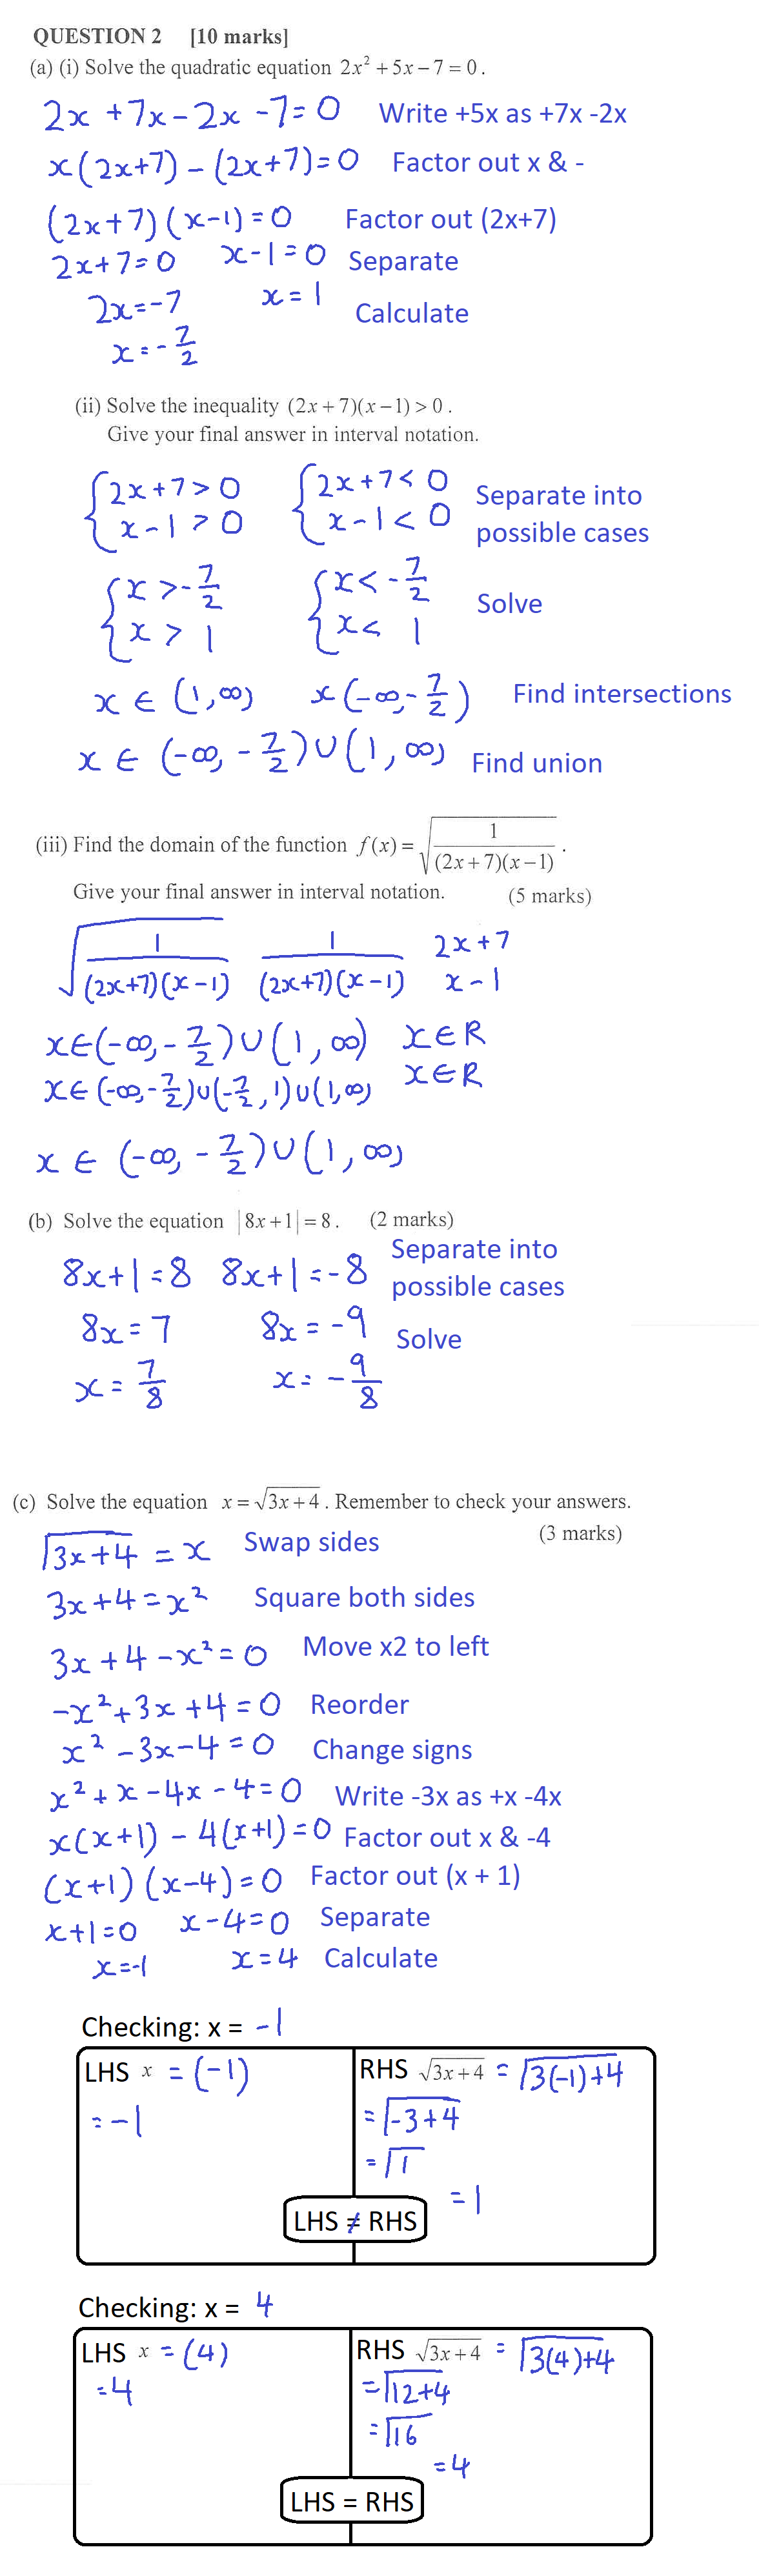 QUESTION 2 [10 marks]
(a) (i) Solve the quadratic equation 2x² + 5x − 7 = 0 .
2x + 7x − 2x − 7 = 0 Write +5x as +7x -2x
x(2x+7) − (2x+7) = 0 Factor out x & -
(2x+7)(x−1) = 0 Factor out (2x+7)
2x+7=0 x−1=0 Separate
2x=−7 x=1 Calculate
x=−7/2
(ii) Solve the inequality (2x + 7)(x − 1) > 0 .
Give your final answer in interval notation.
{2x+7>0 {2x+7<0 Separate into
x−1>0 x−1<0 possible cases
{x>−7/2 {x<−7/2 Solve
x>1 x<1
x ∈ (1,∞) x(−∞,−7/2) Find intersections
x ∈ (−∞, −7/2) ∪ (1, ∞) Find union
(iii) Find the domain of the function f(x) = √(1/((2x + 7)(x − 1))) .
Give your final answer in interval notation. (5 marks)
√(1/((2x+7)(x−1))) 1/((2x+7)(x−1)) 2x+7
x−1
x∈(−∞,−7/2)∪(1,∞) x∈R
x∈(−∞,−7/2)∪(−7/2,1)∪(1,∞) x∈R
x ∈ (−∞, −7/2) ∪ (1, ∞)
(b) Solve the equation |8x + 1| = 8 . (2 marks)
8x+1=8 8x+1=−8 Separate into
possible cases
8x=7 8x=−9 Solve
x=7/8 x=−9/8
(c) Solve the equation x = √(3x + 4) . Remember to check your answers.
(3 marks)
√(3x+4) = x Swap sides
3x+4=x² Square both sides
3x+4−x²=0 Move x2 to left
−x²+3x+4=0 Reorder
x²−3x−4=0 Change signs
x²+x−4x−4=0 Write -3x as +x -4x
x(x+1)−4(x+1)=0 Factor out x & -4
(x+1)(x−4)=0 Factor out (x + 1)
x+1=0 x−4=0 Separate
x=−1 x=4 Calculate
Checking: x = −1
LHS x = (−1) RHS √(3x + 4) = √(3(−1)+4)
=−1 =√(−3+4)
=√1
=1
LHS ≠ RHS
Checking: x = 4
LHS x = (4) RHS √(3x + 4) = √(3(4)+4)
=4 =√(12+4)
=√16
=4
LHS = RHS